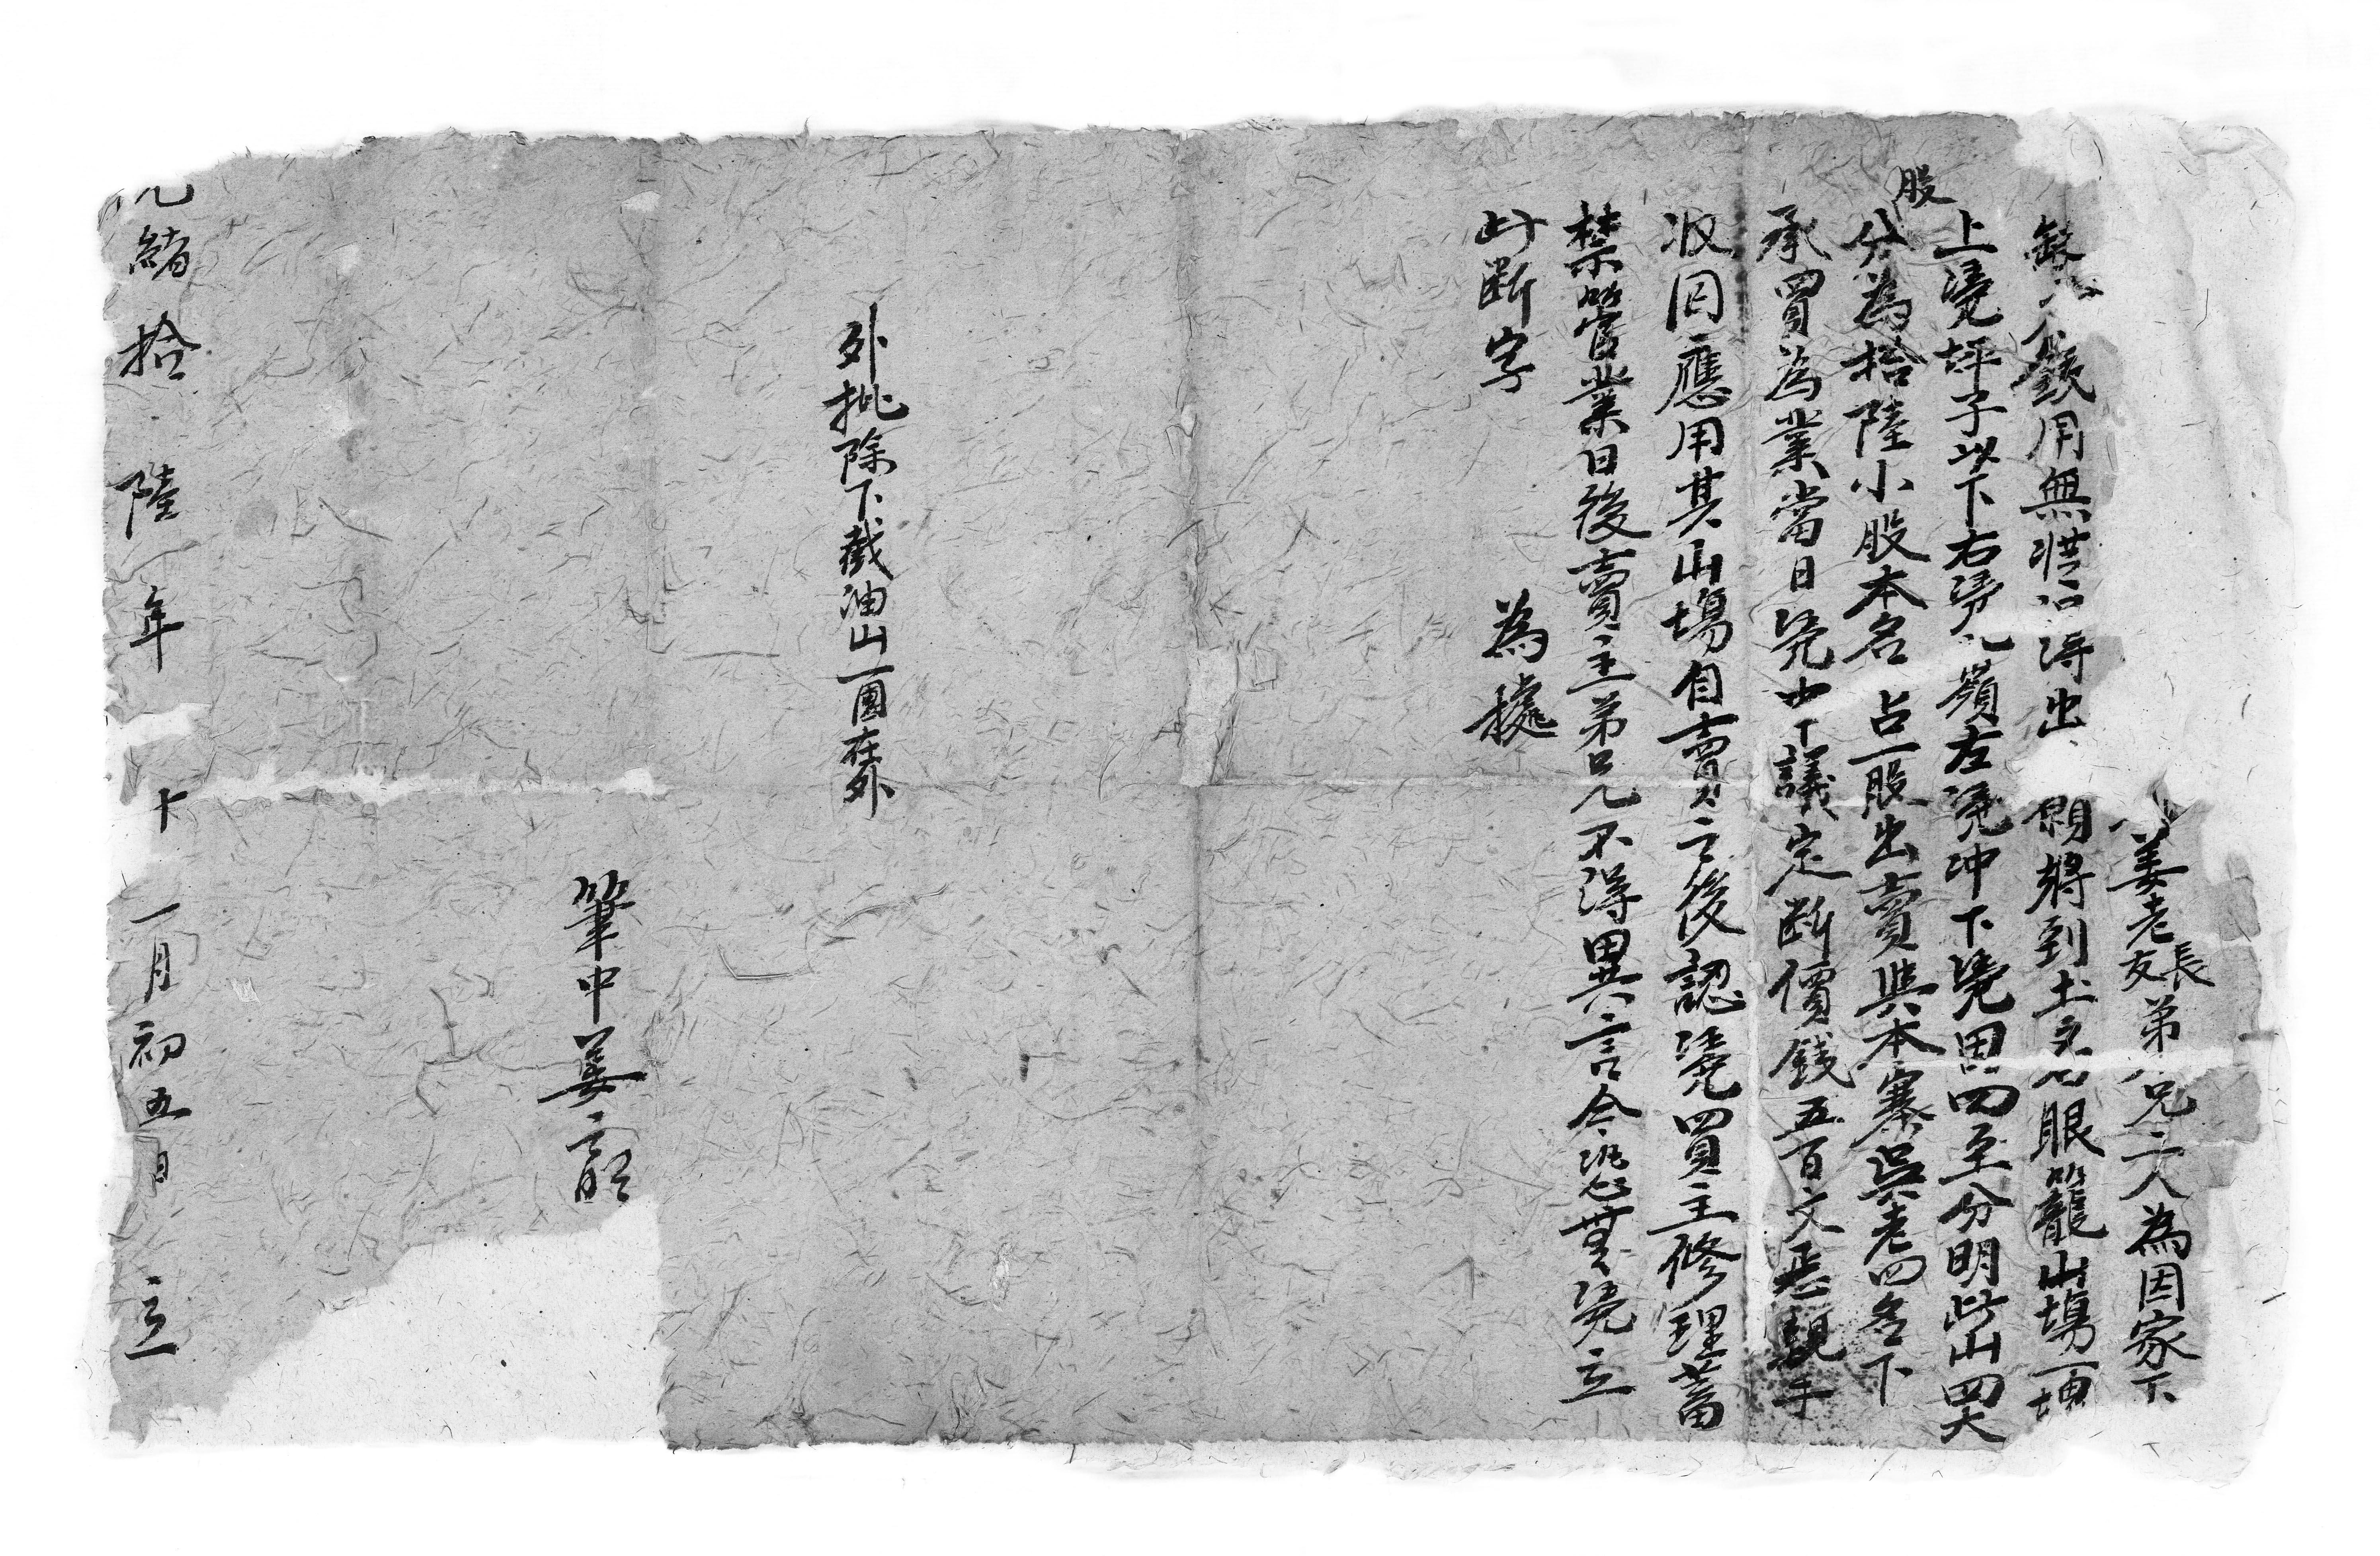 姜老長友弟兄二人為因家下
缺少錢用無從得出願將到土名眼籠山場一塊
上凴坪子以下右凴嶺左凴冲下凴田四至分明此山四大
股
分為拾陸小股本名占一股出賣與本寨吳老四名下
承買為業當日凴中議定斷價錢五百文正親手
收回應用其山場自賣之後認凴買主修理蓄
禁管業日後賣主弟兄不得異言今恐無凴立
此斷字為據
外批除下截油山一團在外
筆中姜
光緒拾陸年十一月初五日立